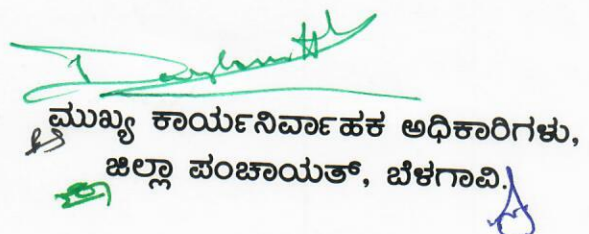 ಮುಖ್ಯ ಕಾರ್ಯನಿರ್ವಾಹಕ ಅಧಿಕಾರಿಗಳು,
ಜಿಲ್ಲಾ ಪಂಚಾಯತ್, ಬೆಳಗಾವಿ.